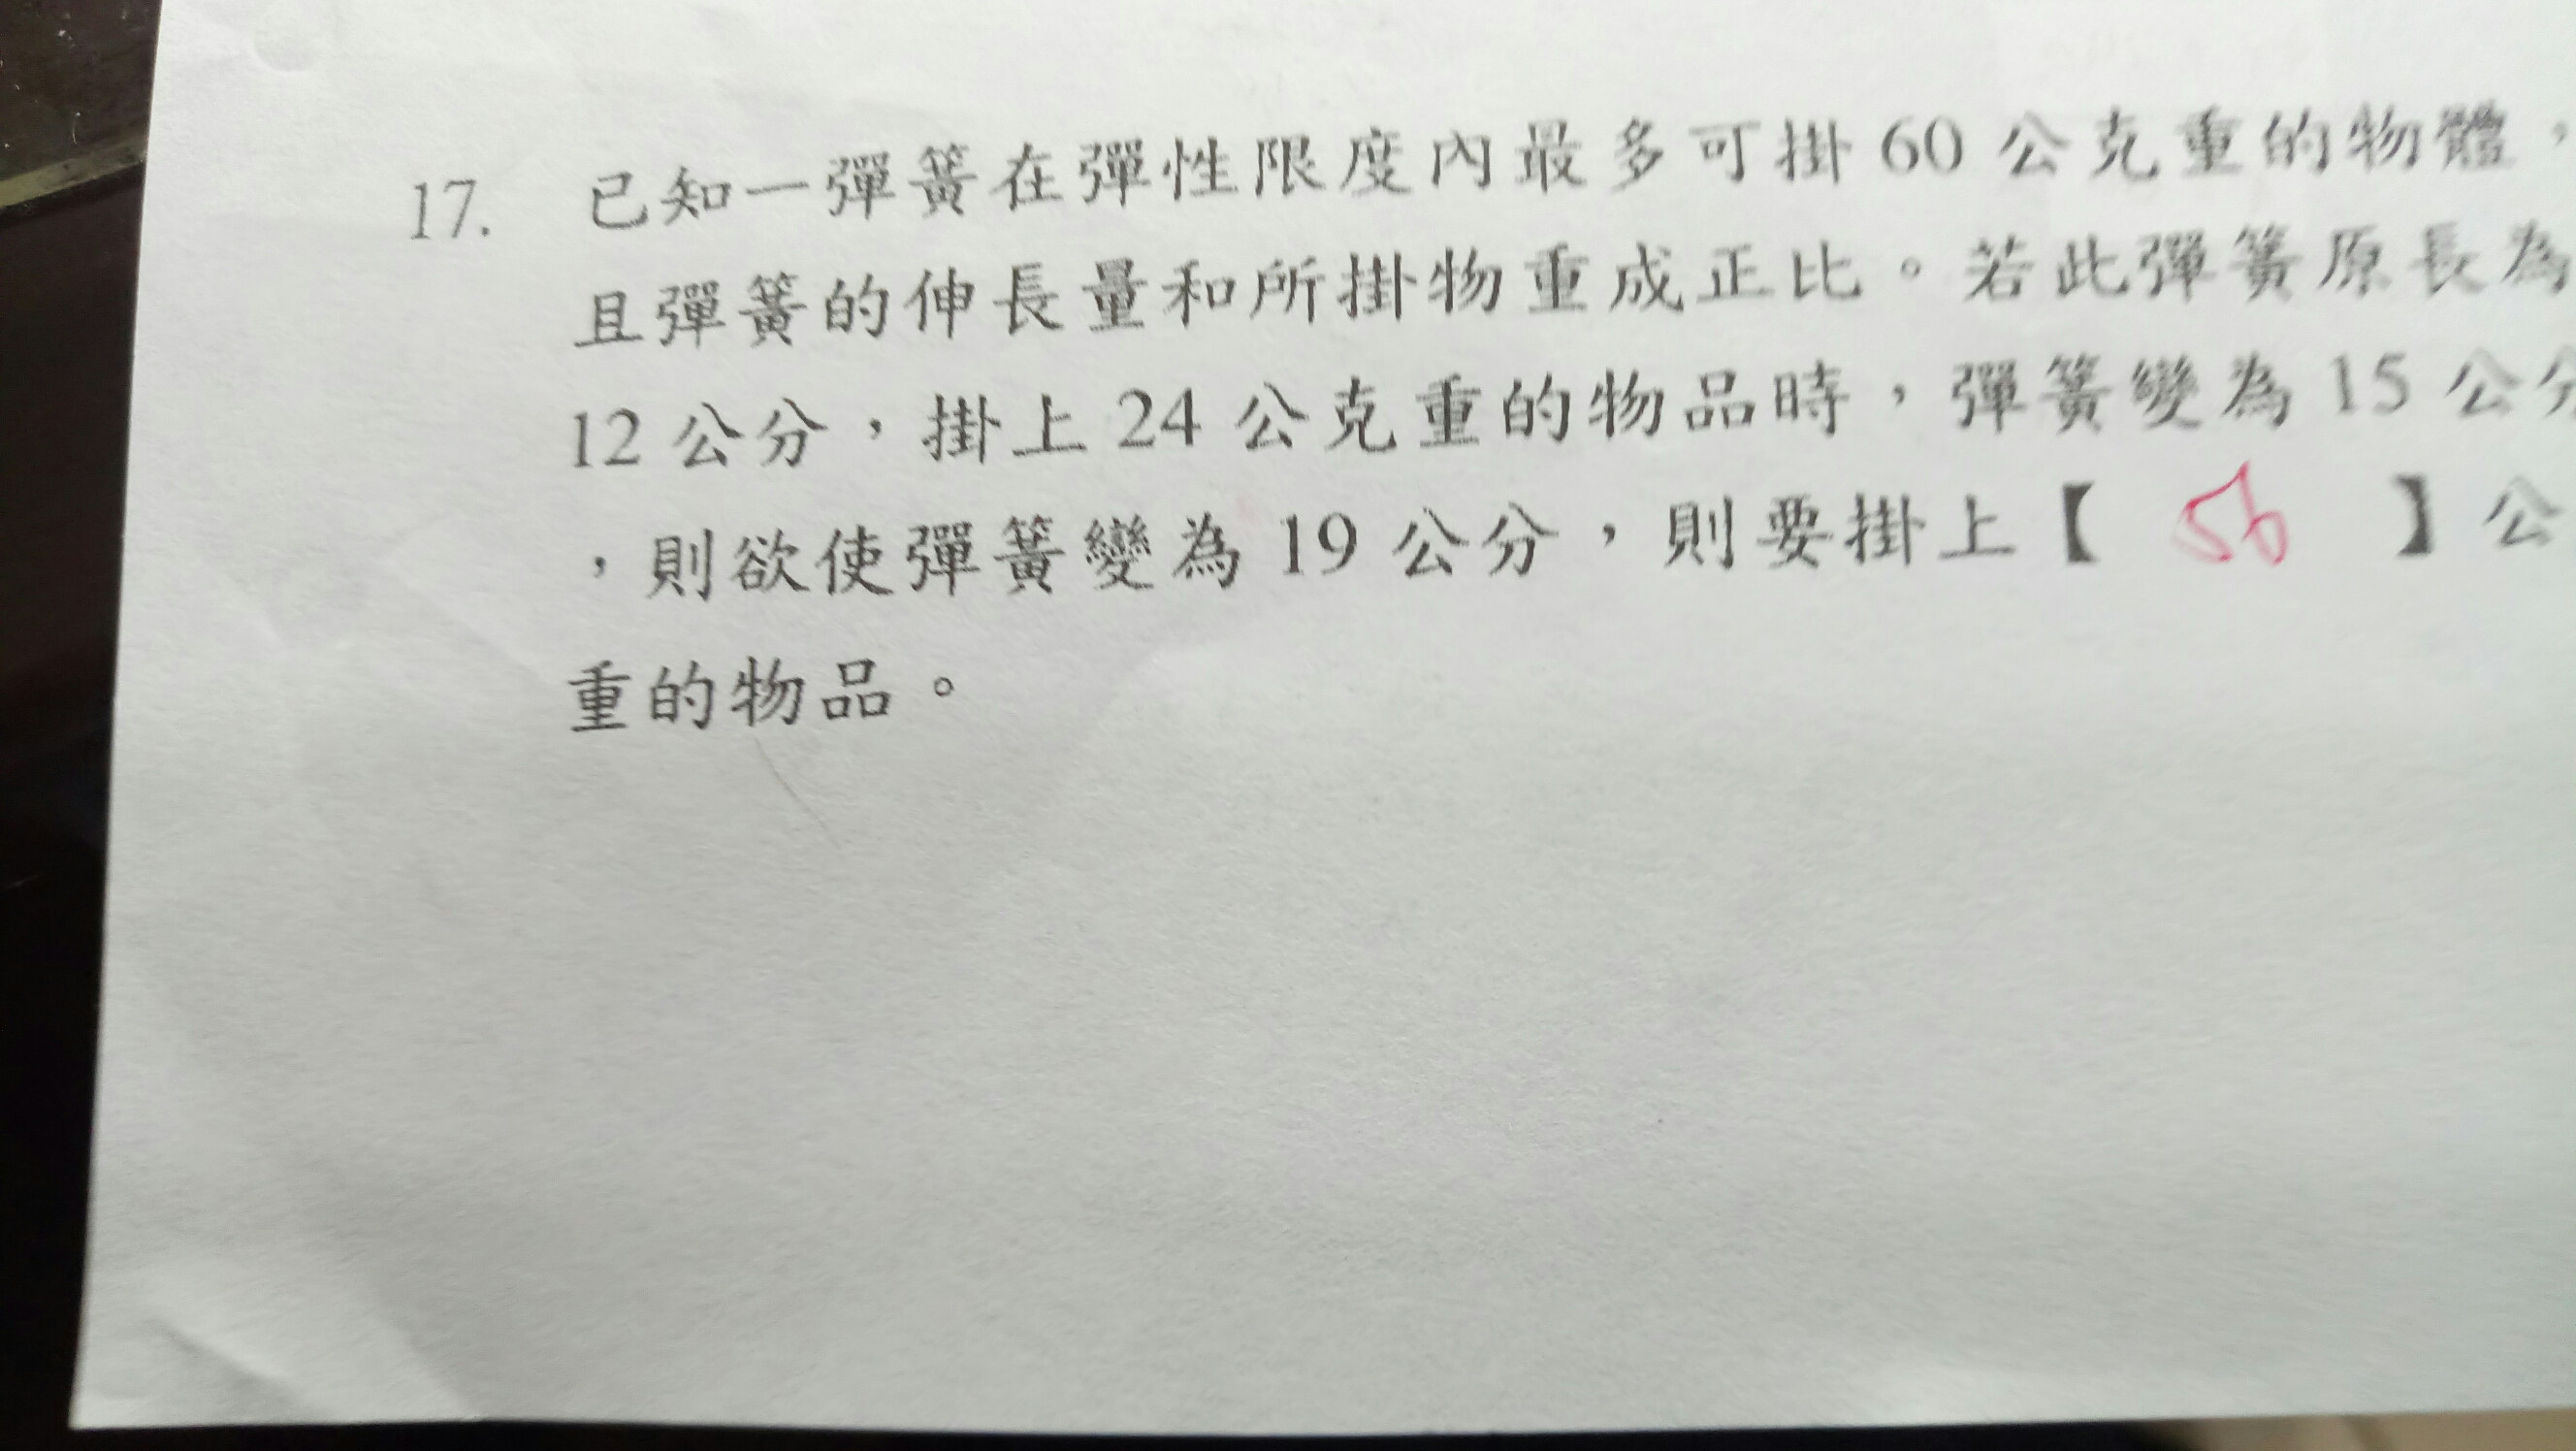 17. 已知一彈簧在彈性限度內最多可掛 60 公克重的物體，
且彈簧的伸長量和所掛物重成正比。若此彈簧原長為
12 公分，掛上 24 公克重的物品時，彈簧變為 15 公分
，則欲使彈簧變為 19 公分，則要掛上【 56 】公
重的物品。